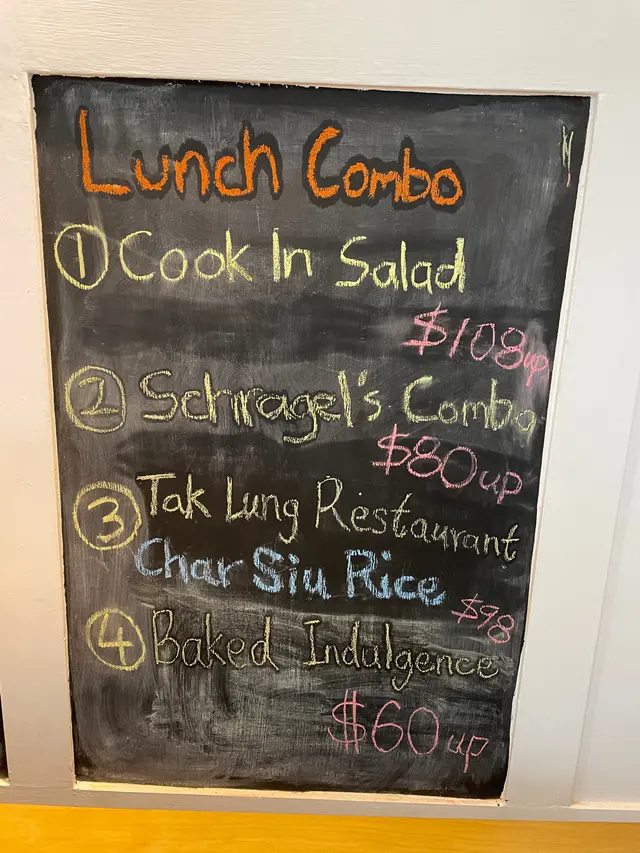 Lunch Combo
① Cook In Salad
$108 up
② Schragel's Combo
$80 up
③ Tak Lung Restaurant
Char Siu Rice
$98
④ Baked Indulgence
$60 up